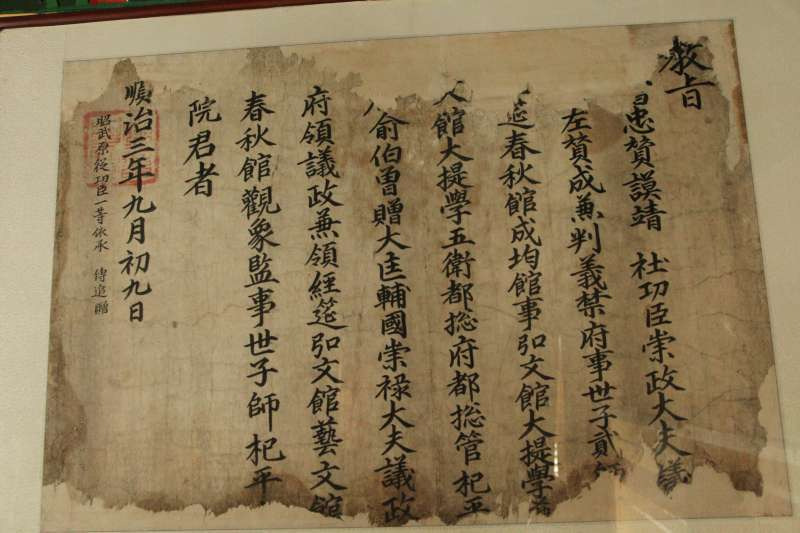 教旨
忠贊謨靖 社功臣崇政大夫議
左贊成兼判義禁府事世子貳
筵春秋館成均館事弘文館大提學
館大提學五衛都摠府都摠管杞平
俞伯曾贈大匡輔國崇祿大夫議政
府領議政兼領經筵弘文館藝文館
春秋館觀象監事世子師杞平
院君者
順治三年九月初九日
昭武原從功臣一等依承 傳追贈